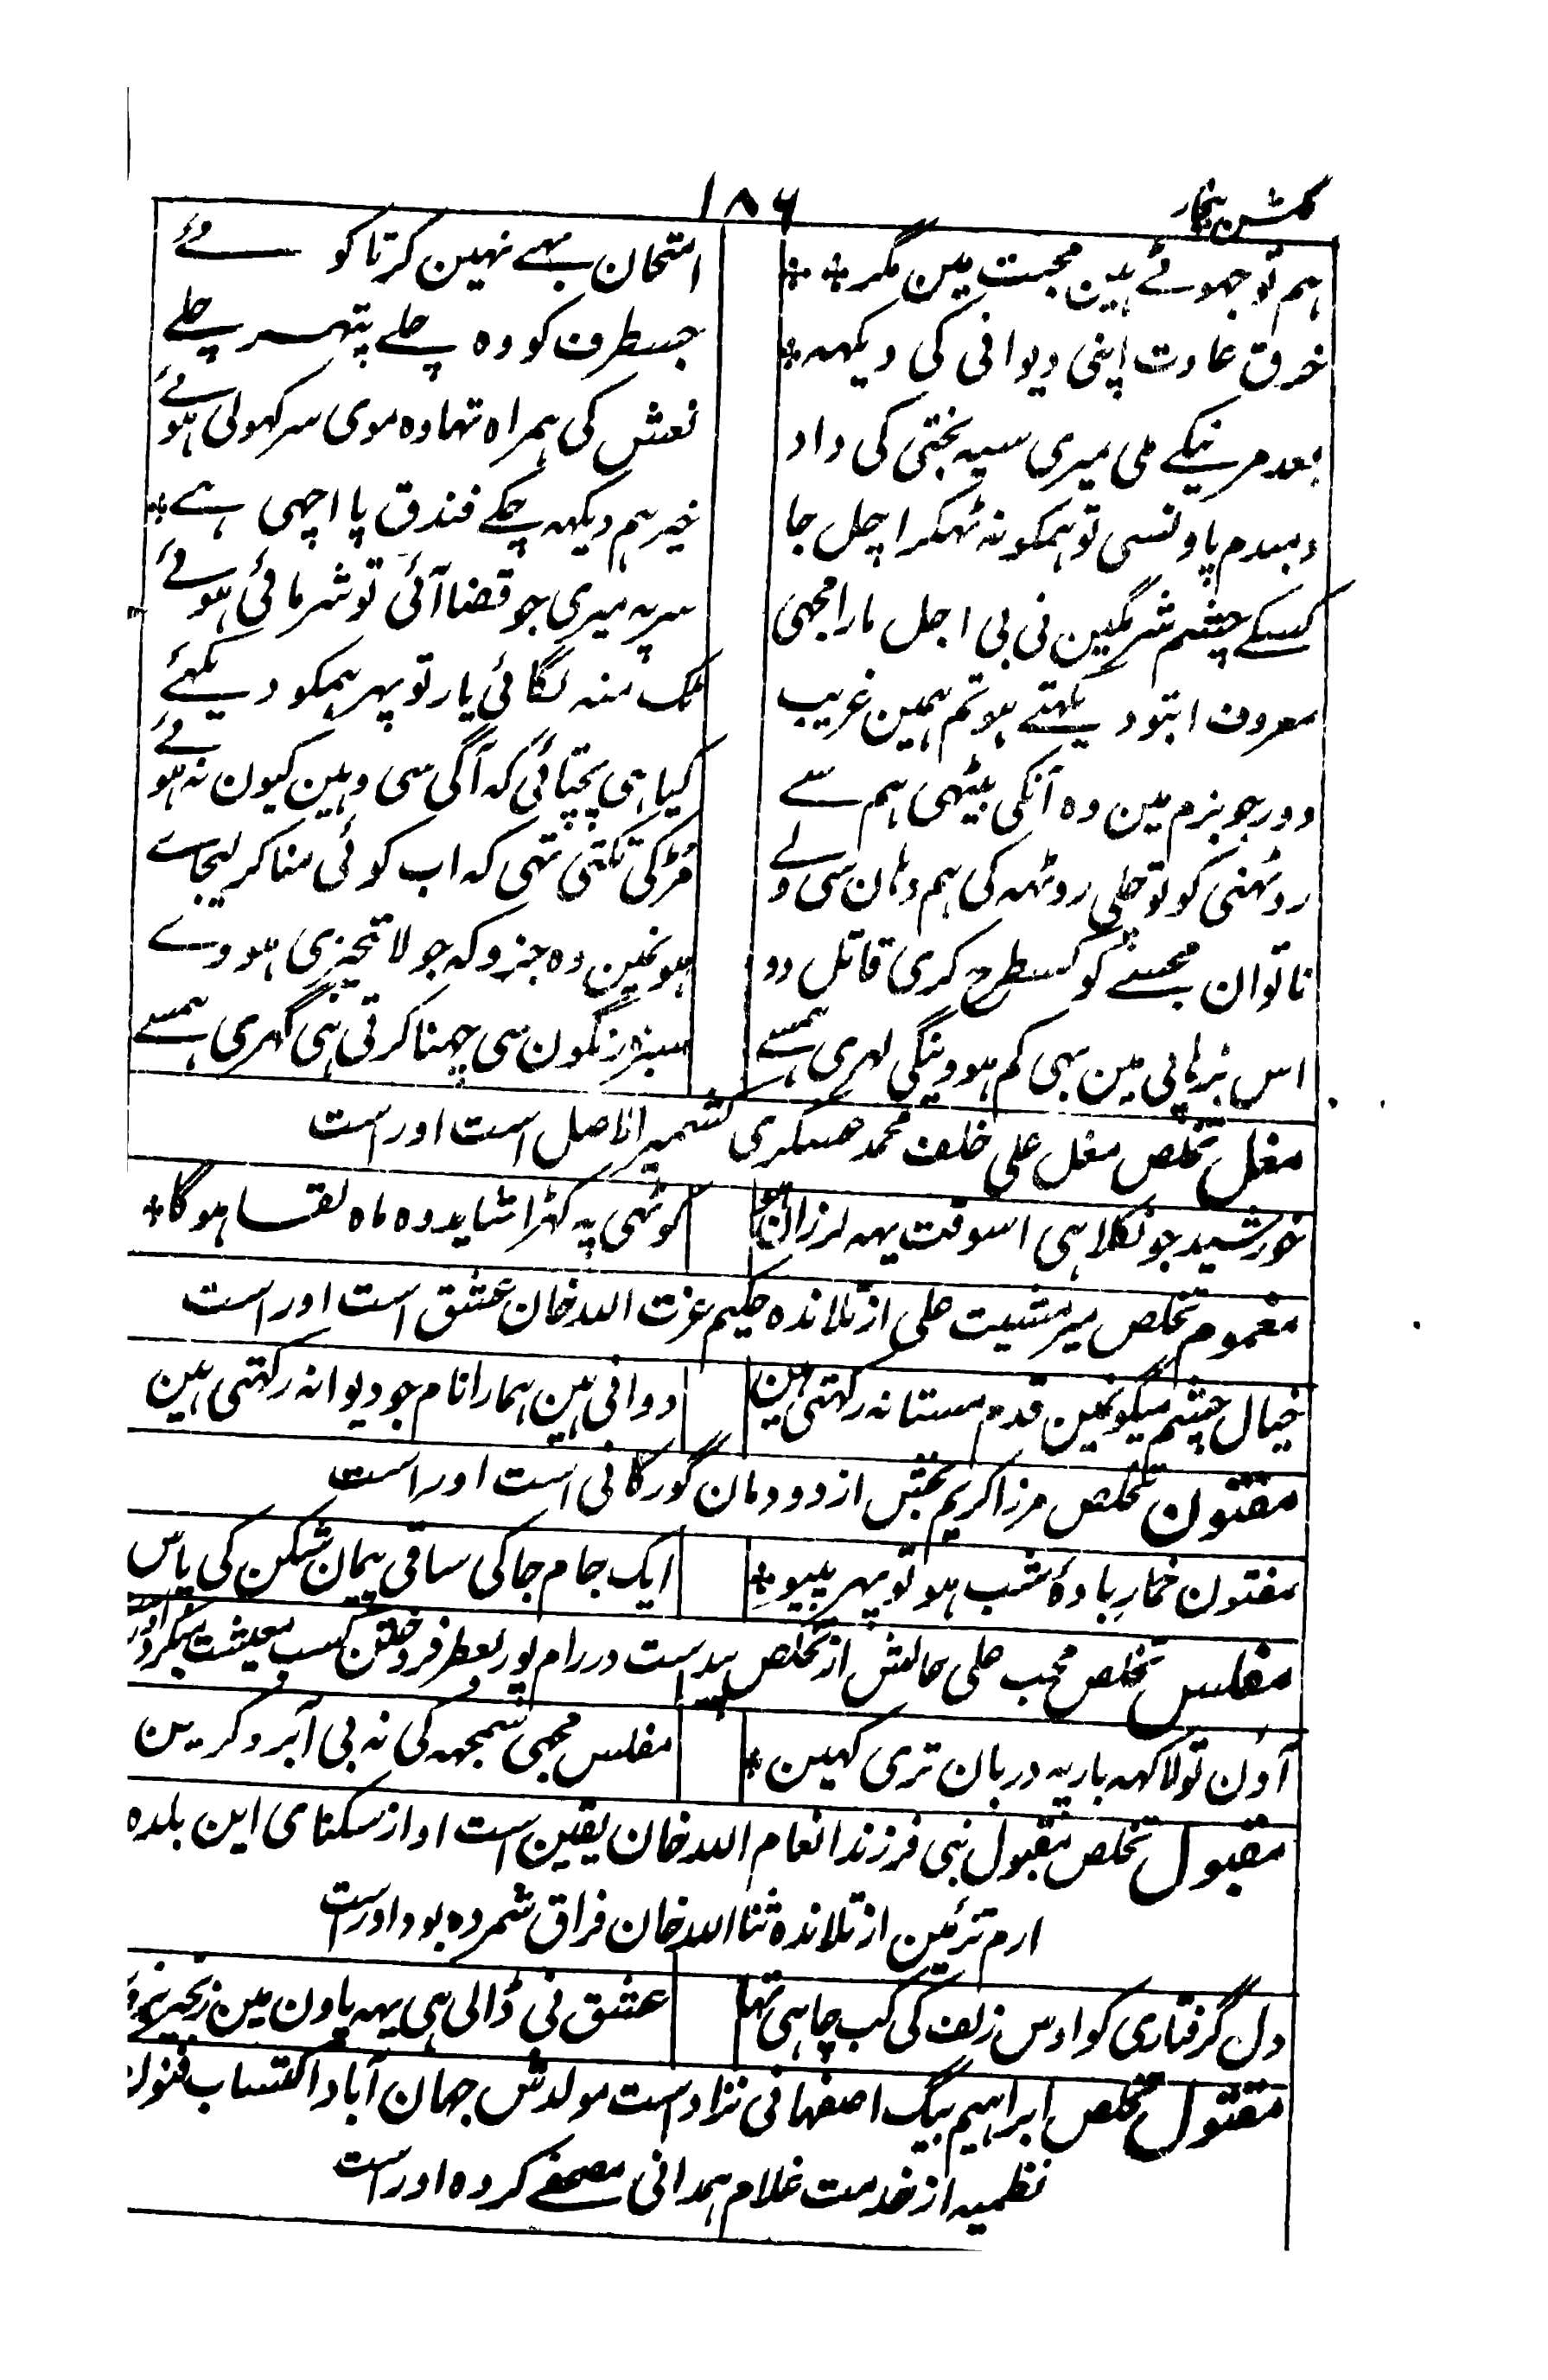 گلشن بیخار
۱۸۶
ہم تو جھوٹے ہین محبت مین مگر ** امتحان بہے نہین کرتا کوئے
خرق عادت اپنی دیوانی کی دیکھہ * جسطرف کو وہ چلے پتھر چلے
بعد مرنیکے ملی میری سیہ بختی کی داد نعش کی ہمراہ تھا وہ موی سر کھولی ہوئے
دمبدم پاونسی تو ہمکو نہ ٹھکرا چل جا خیر ہم دیکھہ چکے فندق پا اچھی ہے *
کسکے چشم شرمگین نی بی اجل مارا مجھی سر پہ میری جو قضا آئی تو شرمائی ہوئے
معروف ابتو دیکھتے ہو تم ہمین غریب ٹک منہ لگائی یار تو پھر ہمکو دیکھئے
دور جو بزم مین وہ آنکی بیٹھی ہم سے کیا ہی پچتائی کہ آگی سی وہین کیون نہ ہوئے
روٹھنی کو تو چلی روٹھہ کی ہم وہان سی ولے مڑ کی تکتی تھی کہ اب کوئی منا کر لیجاے
ناتوان مجسے کو کسطرح کری قاتل دو ہونمین وہ جزو کہ جو لا تجزی ہووے
اس بڑہاپی مین بہی کم ہووینگی لہری ہمسے سبز رنگون سی چھنا کرتی ہی گہری ہمسے
مغل تخلص مغل علی خلف محمد عسکری کشمیر الاصل است اوراست
خورشید جو نکلا ہی اسوقت یہہ لرزان کوٹھی پہ کھڑا شاید وہ ماہ لقسا ہوگا *
مغموم تخلص میر مشیت علی از تلامذہ حکیم عزت اللہ خان عشق است اوراست
خیال چشم میگونمین قدم مستانہ رکھتی ہین دوانی ہین ہمارا نام جو دیوانہ رکھتی ہین
مفتون تخلص مرزا کریم بخش از دودمان گورکانی است اوراست
مفتون خمار بادۂ شب ہو تو پھر پییو * ایک جام جا کی ساقی پیمان شکن کی پاس
مفلس تخلص محب علی حالش از تخلص پیداست در رام پور بعطر فروختن کسب معیشت میکرد اوراست
آون تو لاکھہ بار پہ دربان تری کہین * مفلس مجھی سمجھہ کی نہ بی آبرو کرین
مقبول تخلص مقبول نبی فرزند انعام اللہ خان یقین است او از سکنای این بلدہ
ارم تزئین از تلامذہ ثنا اللہ خان فراق شمردہ بود اوراست
دل گرفتاری کو اوس زلف کی کب چاہی تھا عشق نی ڈالی ہی یہہ پاون مین زنجیر
مقتول تخلص ابراہیم بیگ اصفہانی نژاد است مولدش جہان آباد اکتساب فنون
نظمیہ از خدمت غلام ہمدانی مصحفے کردہ اوراست